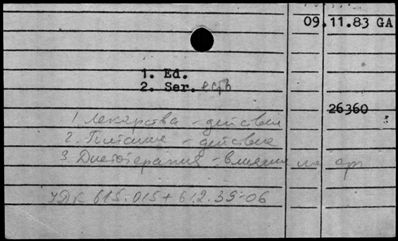 09.11.83 GA
1. Ed.
2. Ser. есть
26360
1. Лекарства - действие
2. Питание - действие
3. Диетотерапия - влияние на орг
УДК 615.015+612.39-06